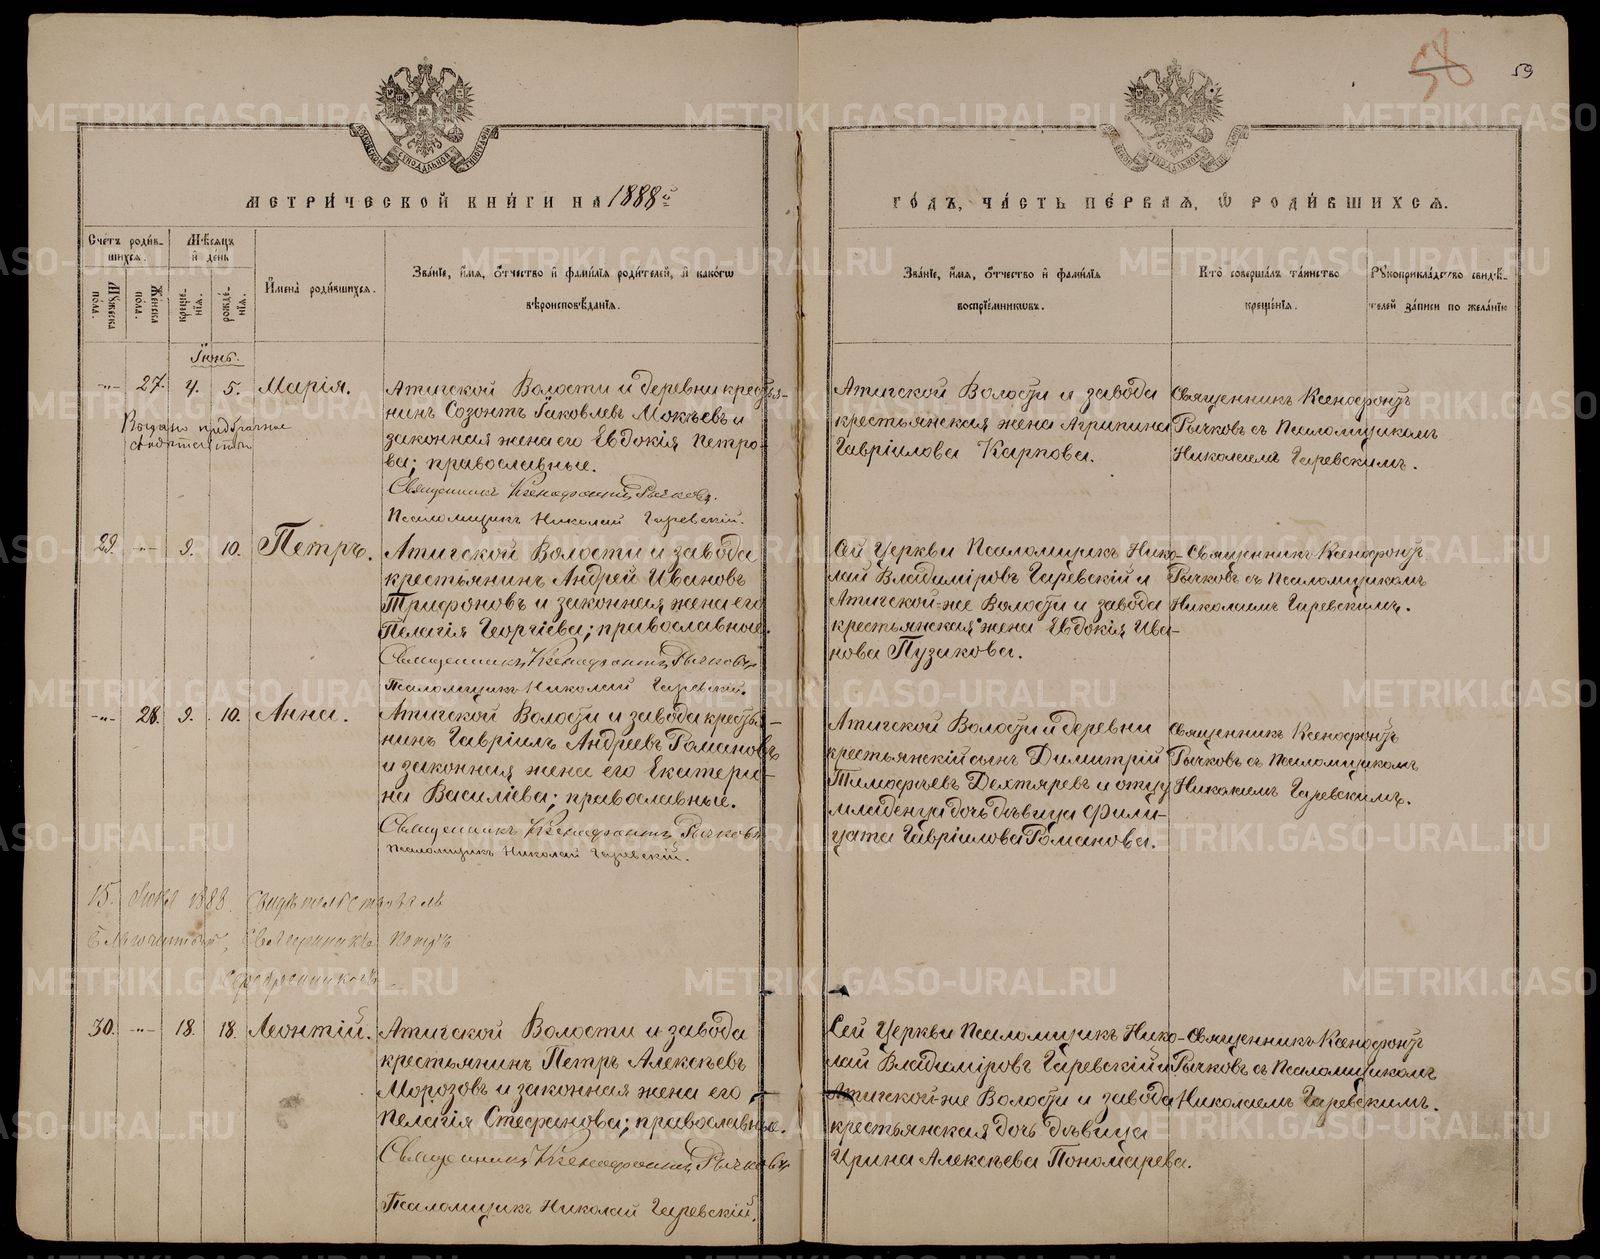 58
59
МЕТРИ́ЧЕСКОЙ КНИ́ГИ НА 1888й
ГО́ДЪ, ЧА́СТЬ ПЕ́РВАЯ, Ѡ РОДИ́ВШИХСЯ.
Сче́тъ роди́в-
шихся.
Мѣ́сяцъ
и́ день
Му́жеска
по́ла.
Же́нска
по́ла.
креще́-
нїя.
рожде́-
нїя.
И́мена̀ роди́вшихся.
Зва́нїе, и́мя, ѻ́тчество и́ фами́лїя роди́телей, и́ како́гѡ
вѣроисповѣ́данїя.
Зва́нїе, и́мя, ѻ́тчество и́ фами́лїя
воспрїе́мниковъ.
Кто̀ соверша́лъ та́инство
креще́нїя.
Рꙋкоприкла́дство свидѣ́-
телей за́писи по жела́нїю
Іюнь.
-"- 27. 4. 5. Марія.
Выдано предбрачное
свидѣтельство
Атигской Волости и деревни крестья-
нинъ Созонтъ Іаковлевъ Мокѣевъ и
законная жена его Евдокія Петро-
ва; православные.
Священникъ Ксенофонтъ Рычковъ.
Псаломщикъ Николай Гаревскій.
Атигской Волости и завода
крестьянская жена Агрипина
Гавріилова Карпова.
Священникъ Ксенофонтъ
Рычковъ съ Псаломщикомъ
Николаемъ Гаревскимъ.
29. -"- 9. 10. Петръ.
Атигской Волости и завода
крестьянинъ Андрей Ивановъ
Трифоновъ и законная жена его
Пелагія Георгіева; православные.
Священникъ Ксенофонтъ Рычковъ
Псаломщикъ Николай Гаревскій.
Сей Церкви Псаломщикъ Нико-
лай Владиміровъ Гаревскій и
Атигской-же Волости и завода
крестьянская жена Евдокія Ива-
нова Пузакова.
Священникъ Ксенофонтъ
Рычковъ съ Псаломщикомъ
Николаемъ Гаревскимъ.
-"- 28. 9. 10. Анна.
Атигской Волости и завода крестья-
нинъ Гавріилъ Андреевъ Романовъ
и законная жена его Екатери-
на Василіева; православные.
Священникъ Ксенофонтъ Рычковъ
Псаломщикъ Николай Гаревскій.
Атигской Волости и деревни
крестьянскій сынъ Димитрій
Тимофѣевъ Дехтяревъ и отцу
младенца дочь дѣвица Фили-
цата Гавріилова Романова.
Священникъ Ксенофонтъ
Рычковъ съ Псаломщикомъ
Николаемъ Гаревскимъ.
15. Іюня 1888. Свидѣтельствовалъ
Благочинный, Священникъ Петръ
30. -"- 18. 18. Леонтій.
Атигской Волости и завода
крестьянинъ Петръ Алексѣевъ
Морозовъ и законная жена его
Пелагія Стефанова; православные.
Священникъ Ксенофонтъ Рычковъ
Псаломщикъ Николай Гаревскій.
Сей Церкви Псаломщикъ Нико-
лай Владиміровъ Гаревскій и
Атигской-же Волости и завода
крестьянская дочь дѣвица
Ирина Алексѣева Пономарева.
Священникъ Ксенофонтъ
Рычковъ съ Псаломщикомъ
Николаемъ Гаревскимъ.
METRIKI.GASO-URAL.RU